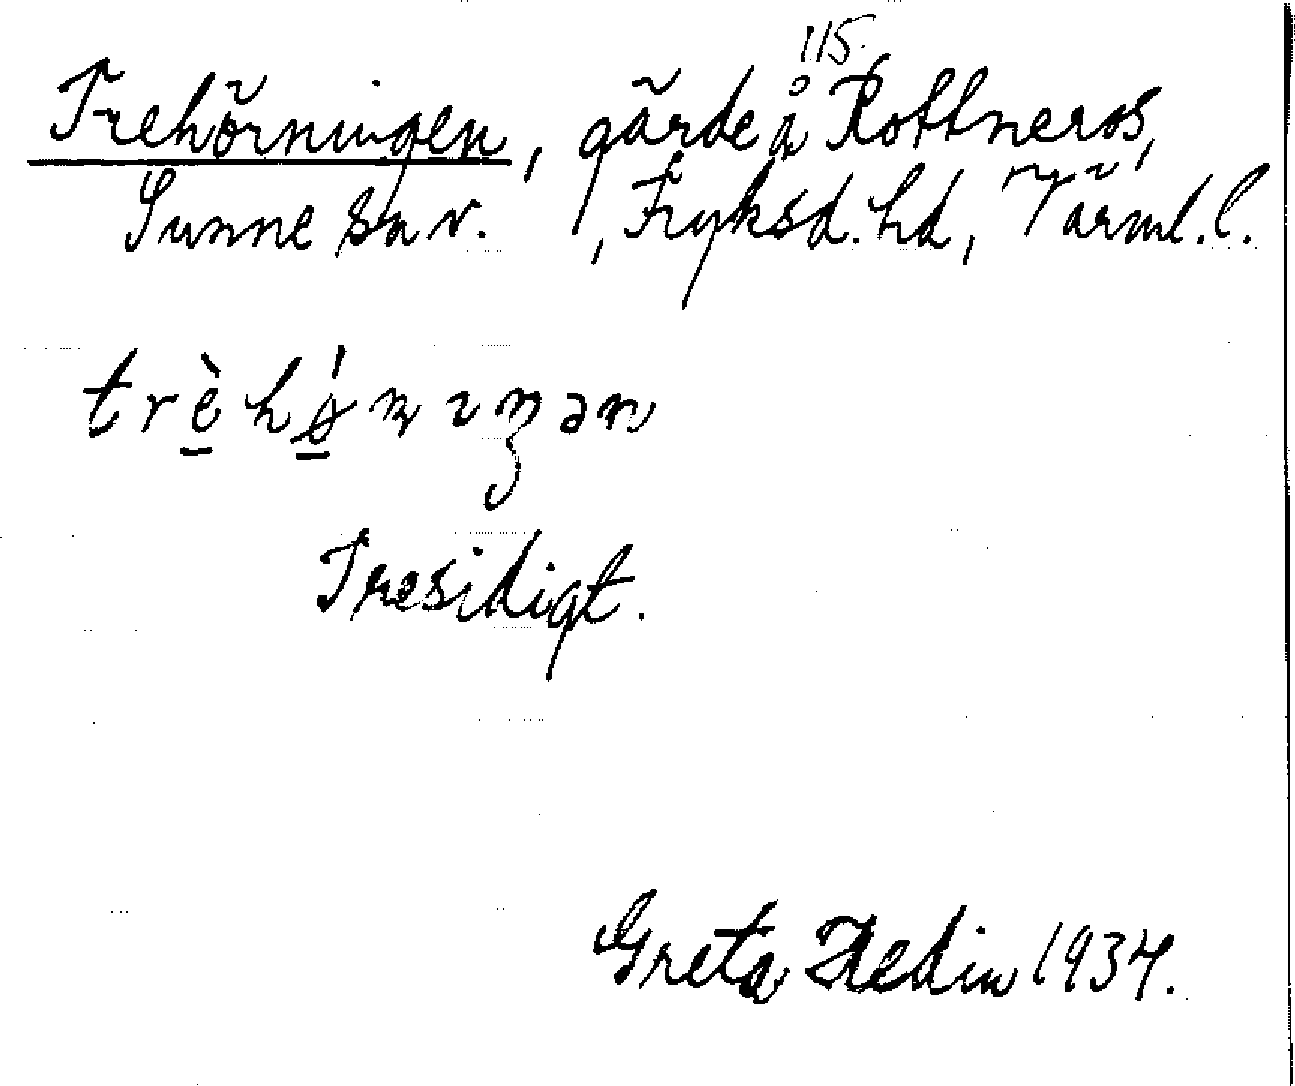 115.
Trehörningen, gärde å Rottneros,
Sunne sn v., Fryksd. hd, Värml. l.
trèhǿrnıŋən
Tresidigt.
Greta Hedin 1934.